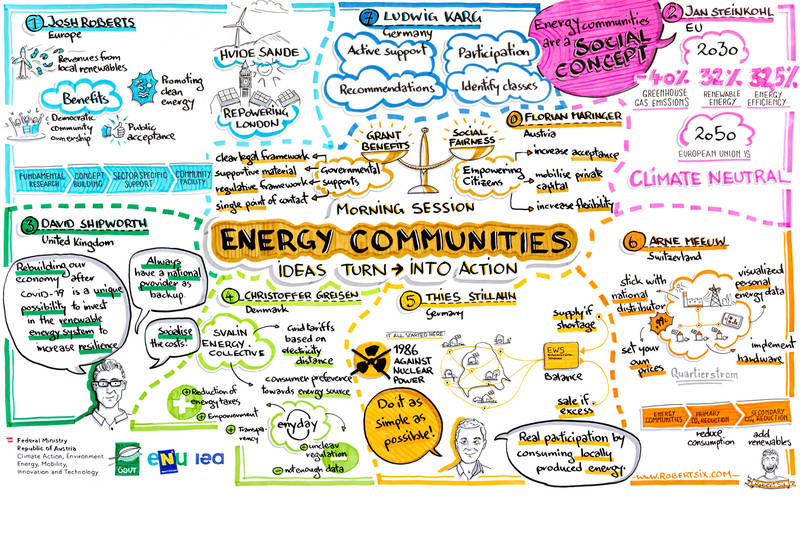 1 JOSH ROBERTS
Europe
Revenues from
local renewables
Benefits
Promoting
clean
energy
Democratic
community
ownership
Public
acceptance
FUNDAMENTAL
RESEARCH
CONCEPT
BUILDING
SECTOR SPECIFIC
SUPPORT
COMMUNITY
FACILITY
HVIDE SANDE
REPOWERING
LONDON
7 LUDWIG KARG
Germany
Active support
Participation
Recommendations
Identify classes
Energy communities
are a SOCIAL
CONCEPT
2 JAN STEINKOHL
EU
2030
-40%
GREENHOUSE
GAS EMISSIONS
32%
RENEWABLE
ENERGY
32,5%
ENERGY
EFFICIENCY
2050
EUROPEAN UNION IS
CLIMATE NEUTRAL
0 FLORIAN MARINGER
Austria
GRANT
BENEFITS
SOCIAL
FAIRNESS
clear legal framework
supportive material
regulative framework
single point of contact
Governmental
supports
Empowering
Citizens
increase acceptance
mobilise private
capital
increase flexibility
MORNING SESSION
ENERGY COMMUNITIES
IDEAS TURN → INTO ACTION
3 DAVID SHIPWORTH
United Kingdom
Rebuilding our
economy after
covid-19 is a unique
possibility to invest
in the renewable
energy system to
increase resilience
Always
have a national
provider as
backup.
Socialise
the costs.
4 CHRISTOFFER GREISEN
Denmark
SVALIN
ENERGY
COLLECTIVE
Grid tariffs
based on
electricity
distance
consumer preference
towards energy source
+ Reduction of
energy taxes
+ Empowerment
+ Transpa-
rency
enyday
- unclear
regulation
- not enough data
5 THIES STILLAHN
Germany
IT ALL STARTED HERE
1986
AGAINST
NUCLEAR
POWER
EWS
supply if
shortage
Balance
sale if
excess
Do it as
simple as
possible!
Real participation by
consuming locally
produced energy.
6 ARNE MEEUW
Switzerland
stick with
national
distributor
visualized
personal
energy data
set your
own
prices
implement
hardware
Quartierstrom
ENERGY
COMMUNITIES
PRIMARY
CO₂ REDUCTION
SECONDARY
CO₂ REDUCTION
reduce
consumption
add
renewables
www.ROBERTSIX.COM
Federal Ministry
Republic of Austria
Climate Action, Environment
Energy, Mobility,
Innovation and Technology
GOUT
eNu
iea